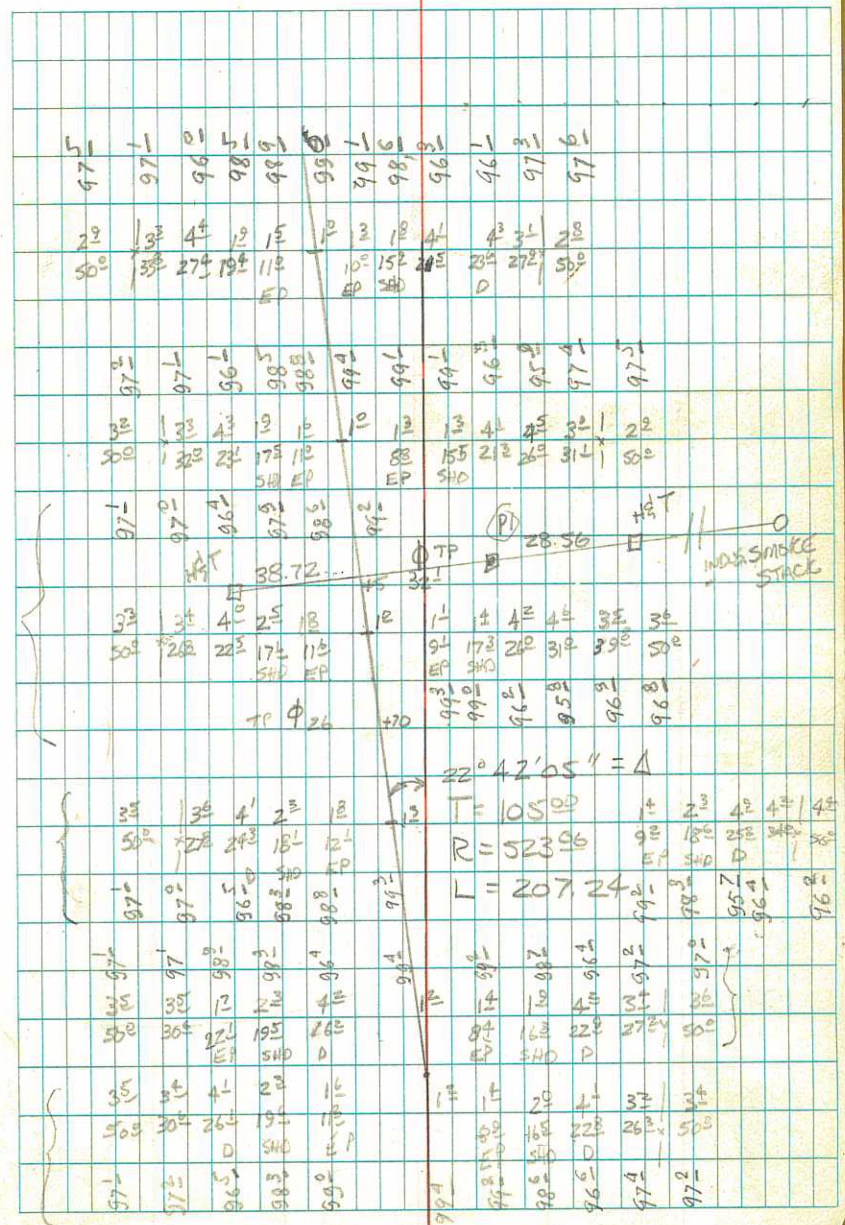 97⁵ 97¹ 96⁰ 98⁵ 98⁹ 99 99¹ 98⁶ 96³ 96¹ 97³ 97⁶
2⁹ 3³ 4⁴ 1⁹ 1⁵ 1⁰ 1³ 1⁸ 4¹ 4³ 3¹ 2⁸
50⁰ 27⁴ 19⁴ 11⁰ 10⁰ 15² 23⁵ 27⁹ 50⁰
EP EP SHD D
97² 97¹ 96¹ 98⁵ 98⁸ 99⁴ 99¹ 99¹ 96³ 95⁹ 97⁴ 97⁵
3² 3³ 4³ 1⁹ 1⁶ 1⁰ 1³ 1³ 4¹ 4⁵ 3⁰ 2⁹
50⁰ 32⁰ 22¹ 17⁵ 11² 8⁸ 15⁵ 21³ 26⁰ 31¹ 50⁰
SHD EP EP SHD
97¹ 97⁰ 96⁴ 97⁹ 98⁶ 99²
H&T 38.72 TP PI 28.56 H&T
IND. SMOKE
STACK
+45 32¹
3³ 3⁴ 4⁰ 2⁵ 1⁸ 1² 1¹ 1⁴ 4² 4⁶ 3⁵ 3⁶
50⁰ 26³ 22⁵ 17¹ 11⁶ 9¹ 17³ 26⁰ 31⁰ 39⁰ 50⁰
SHD EP EP SHD
99³ 99⁰ 96² 95⁸ 96⁹ 96⁸
TP 26 +20
22° 42' 05" = Δ
T = 105⁰⁰
R = 523⁰⁶
L = 207.24
3³ 3⁶ 4¹ 2³ 1⁸ 1³ 1⁴ 2³ 4⁹ 4² 4⁴
50⁰ 27² 24³ 18¹ 12¹ 9² 19⁶ 25² 50⁰
D SHD EP EP SHD D
97¹ 97⁰ 96⁵ 98³ 98⁸ 99³ 99² 98³ 95⁷ 96⁴ 96²
97¹ 97¹ 98⁹ 98³ 96⁴ 99⁴ 99² 98⁷ 96⁴ 97² 97⁰
3⁵ 3⁵ 1⁷ 4² 1² 1⁴ 1⁹ 4² 3⁴ 3⁶
50⁰ 30⁵ 22¹ 19⁵ 26² 8⁴ 16³ 22⁰ 27² 50⁰
EP SHD D EP SHD D
3⁵ 3⁴ 4¹ 2³ 1⁶ 1² 1⁴ 2⁰ 4¹ 3² 3⁴
50⁰ 30⁰ 26¹ 19⁰ 16⁵ 22³ 26³ 50⁵
D SHD EP SHD D
97¹ 97² 96⁵ 98³ 99⁰ 99⁴ 99² 98⁶ 96⁶ 97⁴ 97²